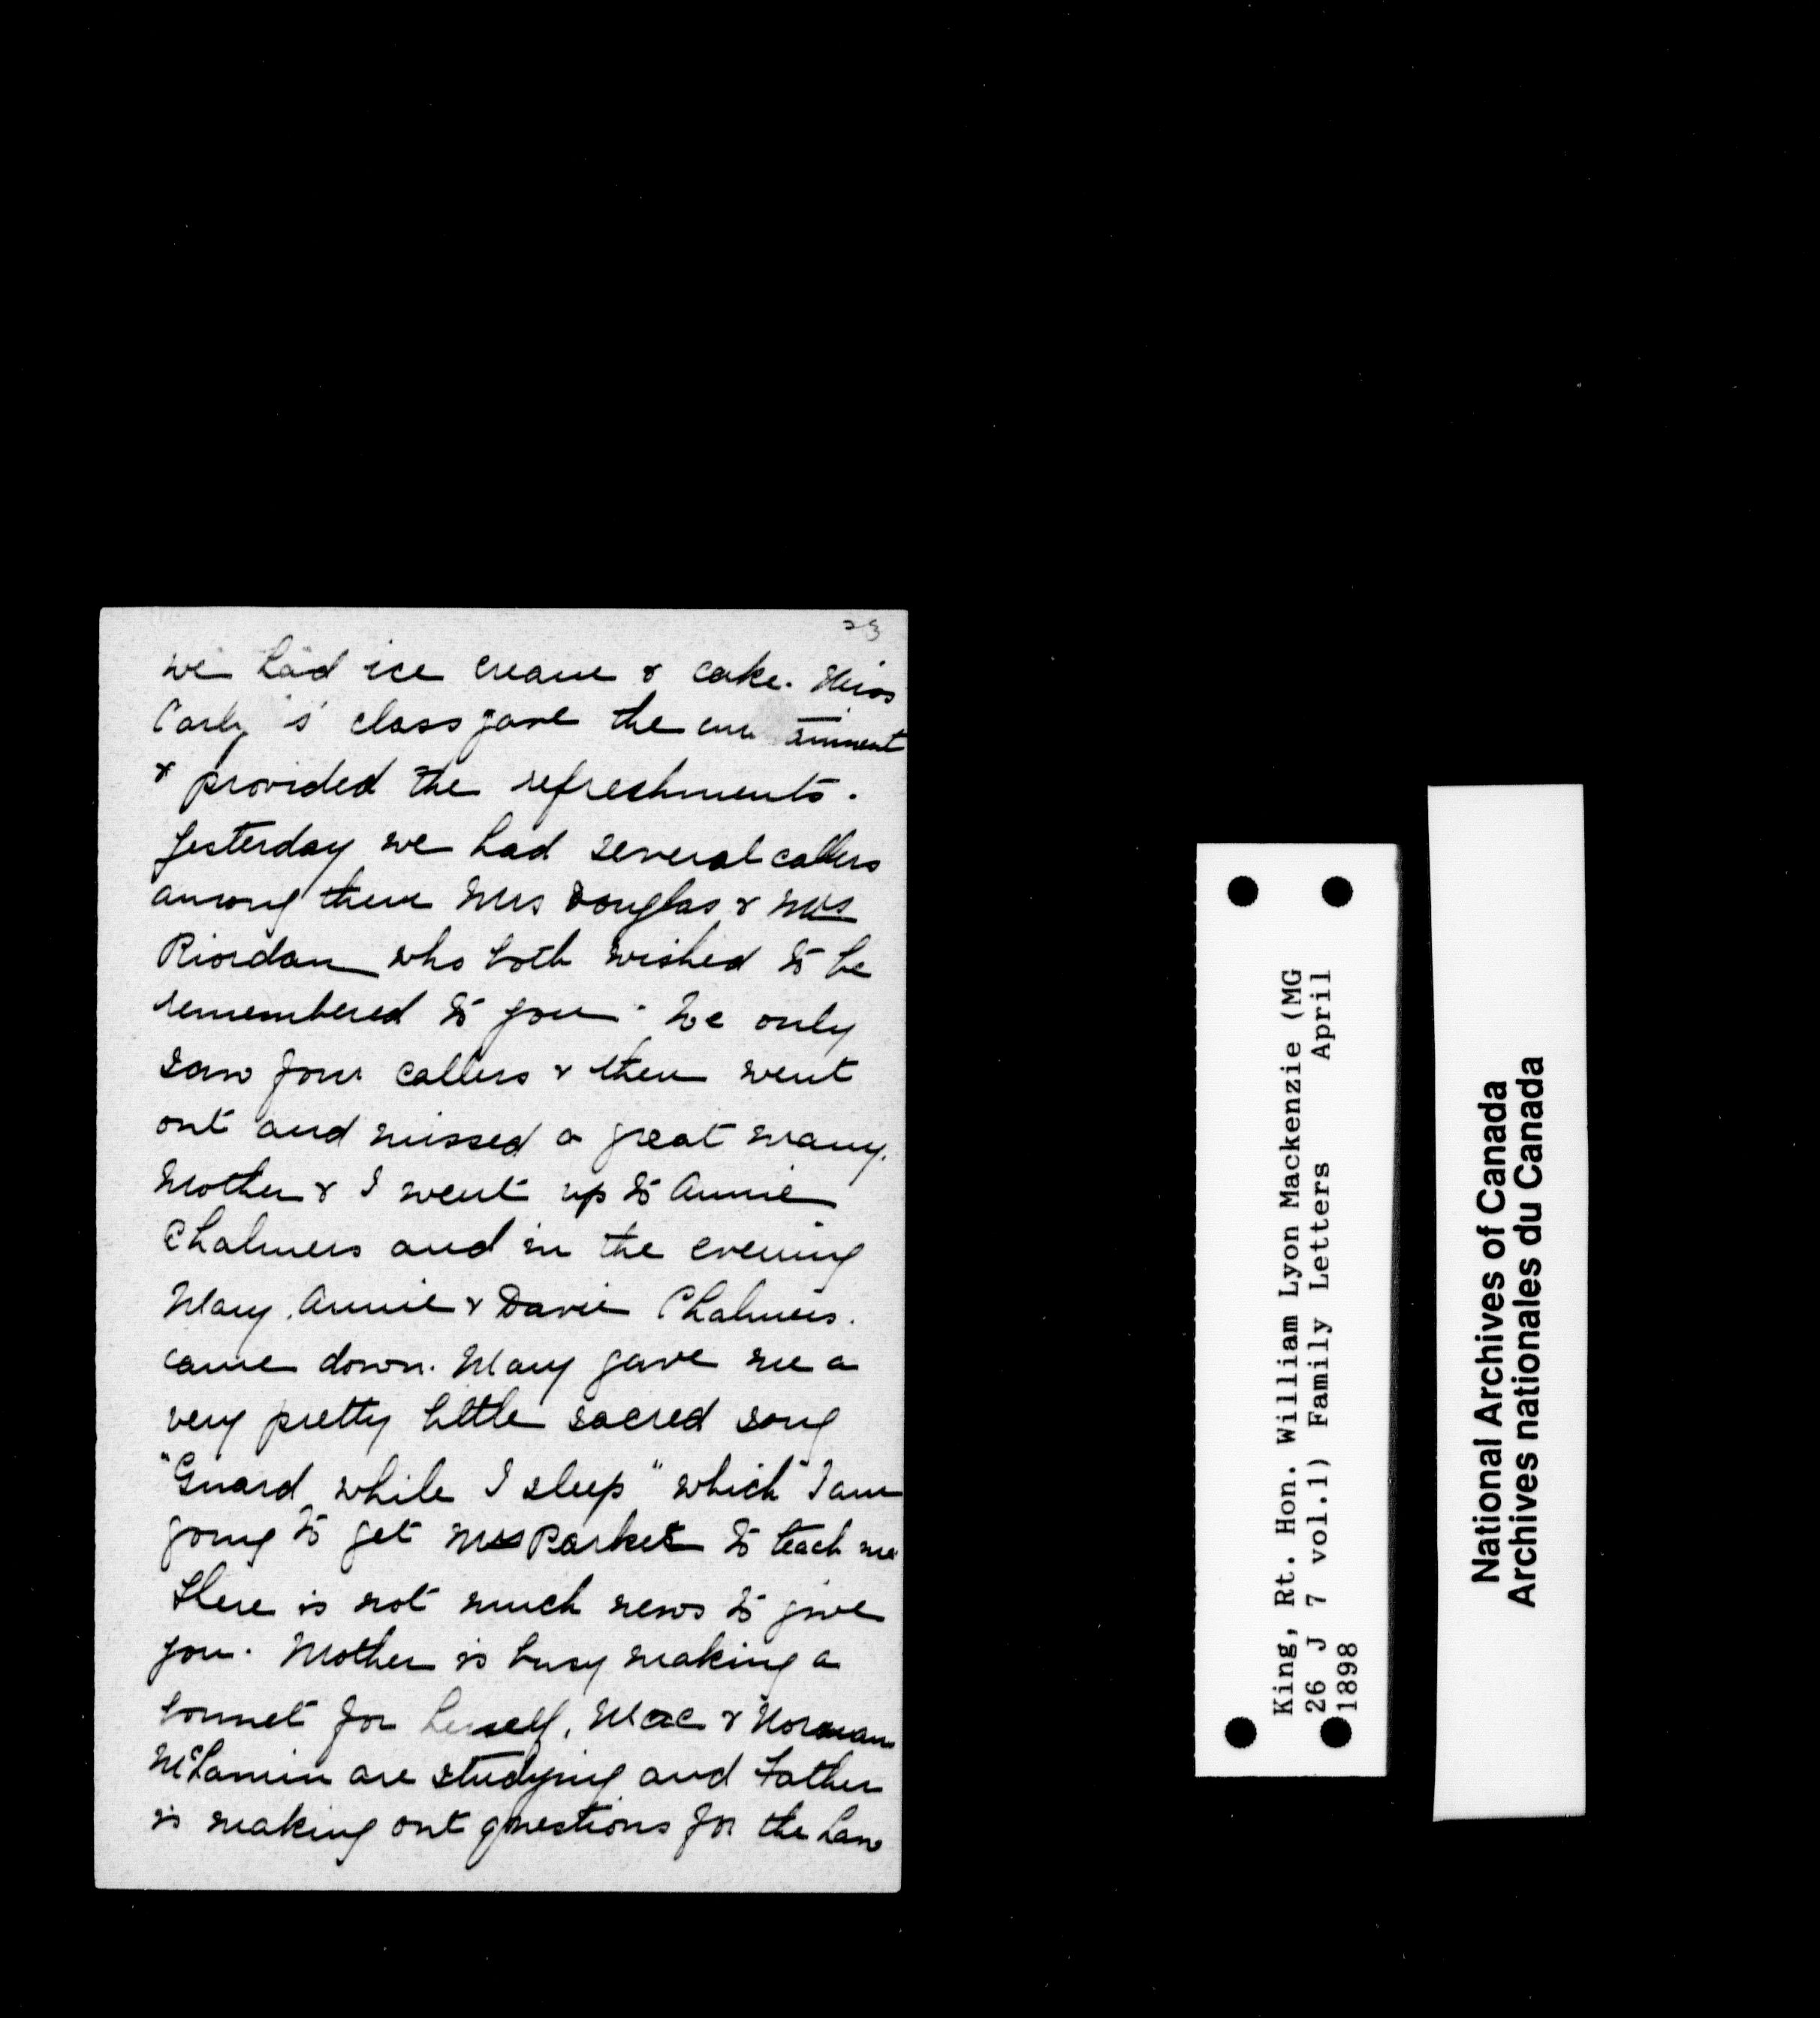 23
we had ice cream & cake. Miss
's class gave the
& provided the refreshments.
Yesterday we had several callers
among them Mrs Douglas & Mrs
Riordan who both wished to be
remembered to you. We only
saw four callers & then went
out and missed a great many.
Mother & I went up to Annie
Chalmers and in the evening
Mary, Annie & Davie Chalmers.
came down. Mary gave me a
very pretty little sacred song
"Guard while I sleep" which I am
going to get Mrs Parker to teach me
There is not much news to give
you. Mother is busy making a
bonnet for herself, Mac & Norman
are studying and Father
is making out questions for the Law
King, Rt. Hon. William Lyon Mackenzie (MG
26 J 7 vol.1) Family Letters April
1898
National Archives of Canada
Archives nationales du Canada